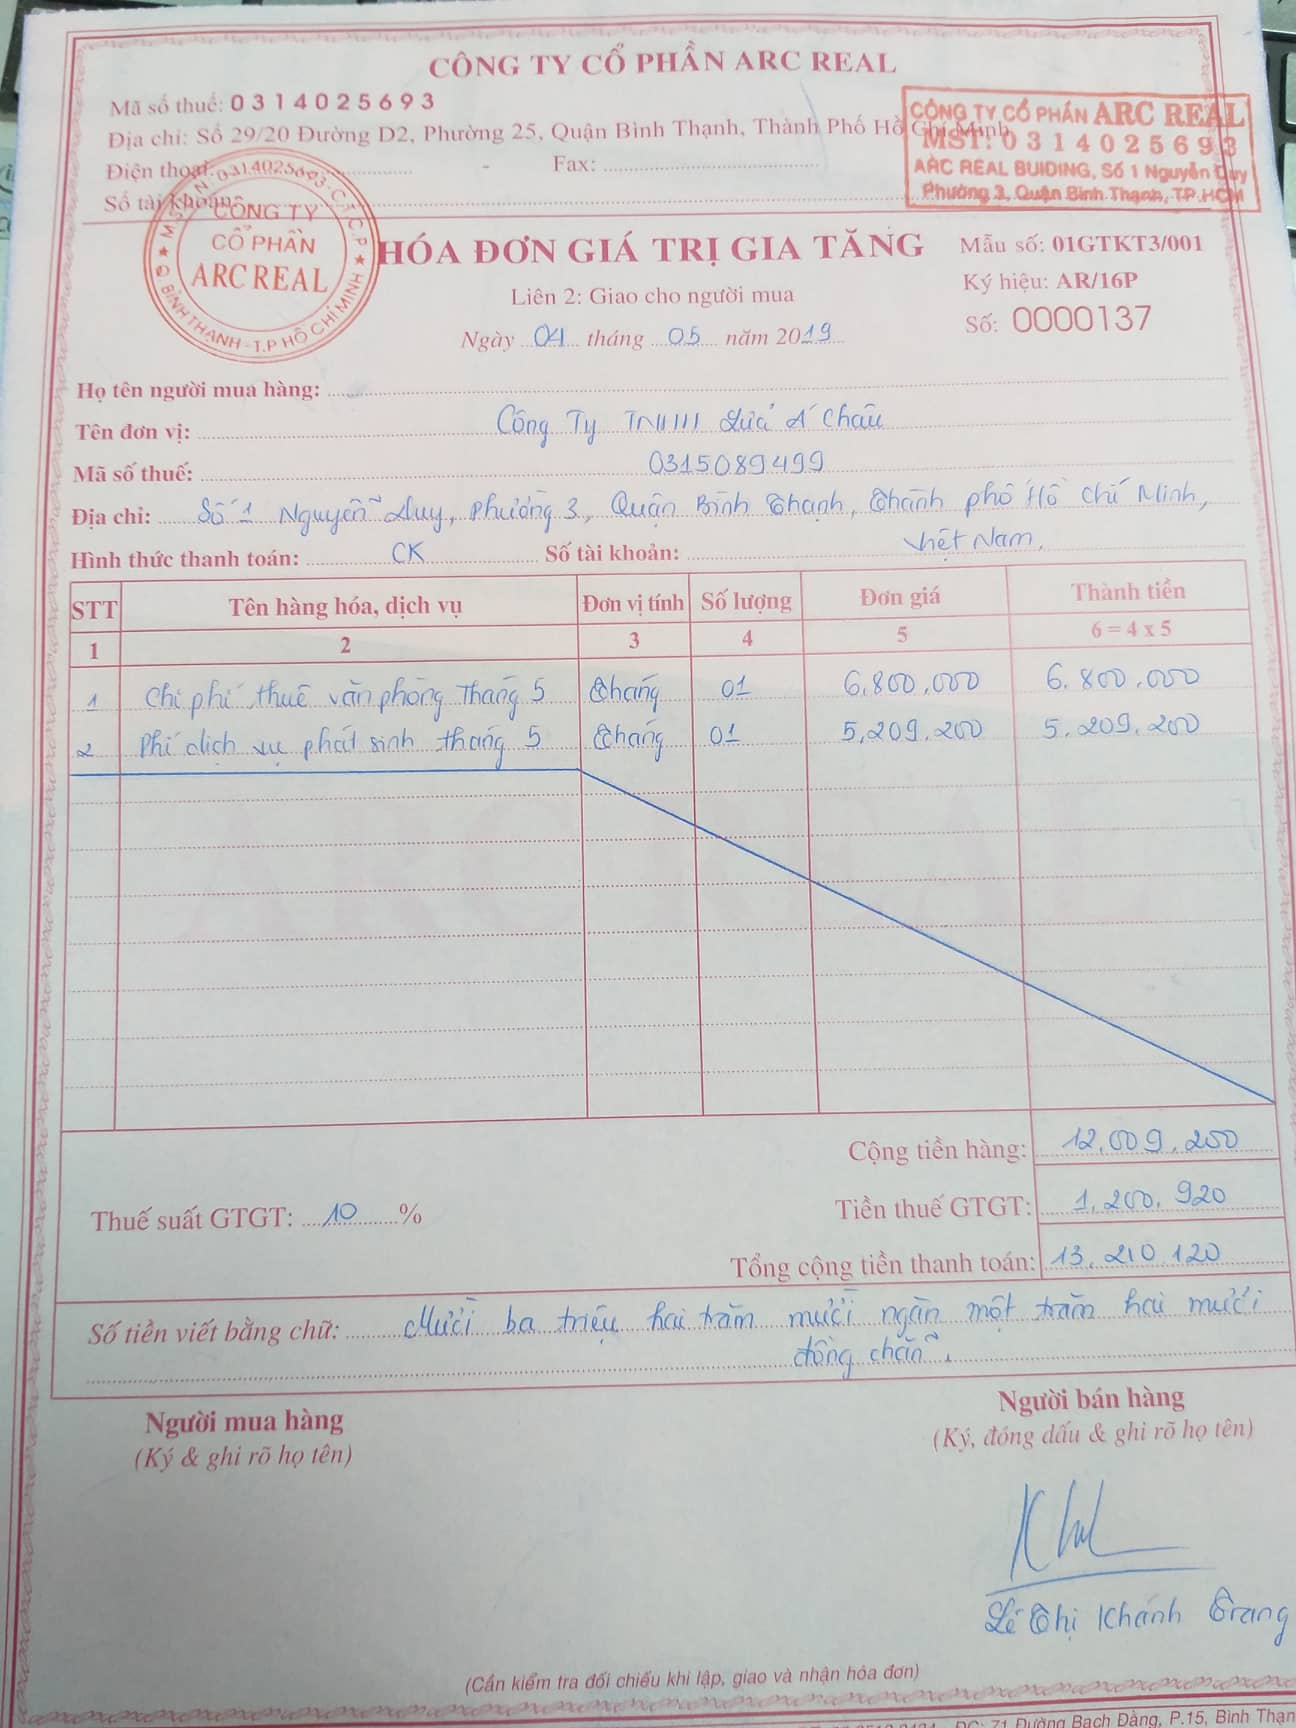 CÔNG TY CỔ PHẦN ARC REAL
Mã số thuế: 0314025693
Địa chỉ: Số 29/20 Đường D2, Phường 25, Quận Bình Thạnh, Thành Phố Hồ Chí Minh
Điện thoại: - Fax:
Số tài khoản:
CÔNG TY CỔ PHẦN ARC REAL
MST: 0314025693
ARC REAL BUIDING, Số 1 Nguyễn Duy
Phường 3, Quận Bình Thạnh, TP.HCM
M.S.D.N: 0314025693-C.T.C.P
CÔNG TY
CỔ PHẦN
ARC REAL
Q. BÌNH THẠNH - T.P HỒ CHÍ MINH
HÓA ĐƠN GIÁ TRỊ GIA TĂNG
Mẫu số: 01GTKT3/001
Liên 2: Giao cho người mua
Ký hiệu: AR/16P
Ngày 04 tháng 05 năm 2019
Số: 0000137
Họ tên người mua hàng:
Tên đơn vị: Công Ty TNHH Lúa Á Châu
Mã số thuế: 0315089499
Địa chỉ: Số 1 Nguyễn Duy, Phường 3, Quận Bình Thạnh, Thành phố Hồ Chí Minh,
Việt Nam.
Hình thức thanh toán: CK Số tài khoản:
STT Tên hàng hóa, dịch vụ Đơn vị tính Số lượng Đơn giá Thành tiền
1 2 3 4 5 6 = 4 x 5
1 Chi phí thuê văn phòng Tháng 5 Tháng 01 6,800,000 6,800,000
2 Phí dịch vụ phát sinh tháng 5 Tháng 01 5,209,200 5,209,200
ARC REAL
Cộng tiền hàng: 12,009,200
Thuế suất GTGT: 10 % Tiền thuế GTGT: 1,200,920
Tổng cộng tiền thanh toán: 13,210,120
Số tiền viết bằng chữ: Mười ba triệu hai trăm mười ngàn một trăm hai mươi
đồng chẵn.
Người mua hàng Người bán hàng
(Ký & ghi rõ họ tên) (Ký, đóng dấu & ghi rõ họ tên)
Lê Thị Khánh Trang
(Cần kiểm tra đối chiếu khi lập, giao và nhận hóa đơn)
ĐC: 71 Đường Bạch Đằng, P.15, Bình Thạn